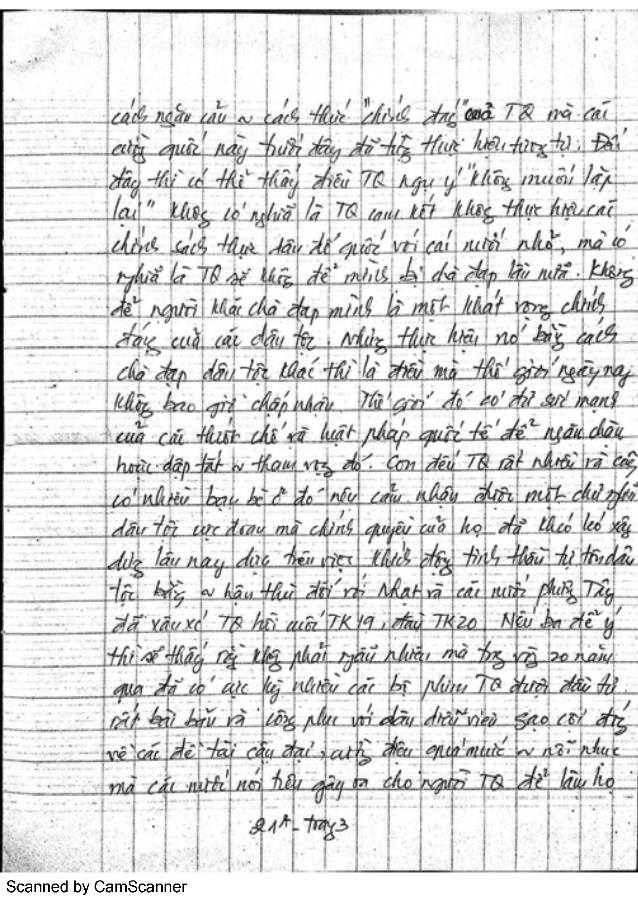 cách ngăn cản ~ cách thức "chính đáng" của TQ mà các
cường quốc này trước đây đã từng thực hiện tương tự. Đến
đây thì có thể thấy điều TQ ngụ ý "không muốn lặp
lại" không có nghĩa là TQ cam kết không thực hiện các
chính sách thực dân đế quốc với các nước nhỏ, mà có
nghĩa là TQ sẽ không để mình bị chà đạp lần nữa. Không
để người khác chà đạp mình là một khát vọng chính
đáng của các dân tộc. Nhưng thực hiện nó bằng cách
chà đạp dân tộc khác thì là điều mà thế giới ngày nay
không bao giờ chấp nhận. Thế giới đó có đủ sức mạnh
của các thiết chế và luật pháp quốc tế để ngăn chặn
hoặc dập tắt ~ tham vọng đó. Con đến TQ rất nhiều và cũng
có nhiều bạn bè ở đó nên cảm nhận được một chủ nghĩa
dân tộc cực đoan mà chính quyền của họ đã khéo léo xây
dựng lâu nay dựa trên việc khích động tinh thần tự tôn dân
tộc bằng ~ hận thù đối với Nhật và các nước phương Tây
đã xâu xé TQ hồi cuối TK19, đầu TK20. Nếu ba để ý
thì sẽ thấy rằng không phải ngẫu nhiên mà trong vòng 20 năm
qua đã có cực kỳ nhiều các bộ phim TQ được đầu tư
rất bài bản và công phu với dàn diễn viên sao cỡ
về các đề tài cận đại, cường điệu quá mức ~ nỗi nhục
mà các nước nói trên gây ra cho người TQ để làm họ
21A - trang 3
Scanned by CamScanner